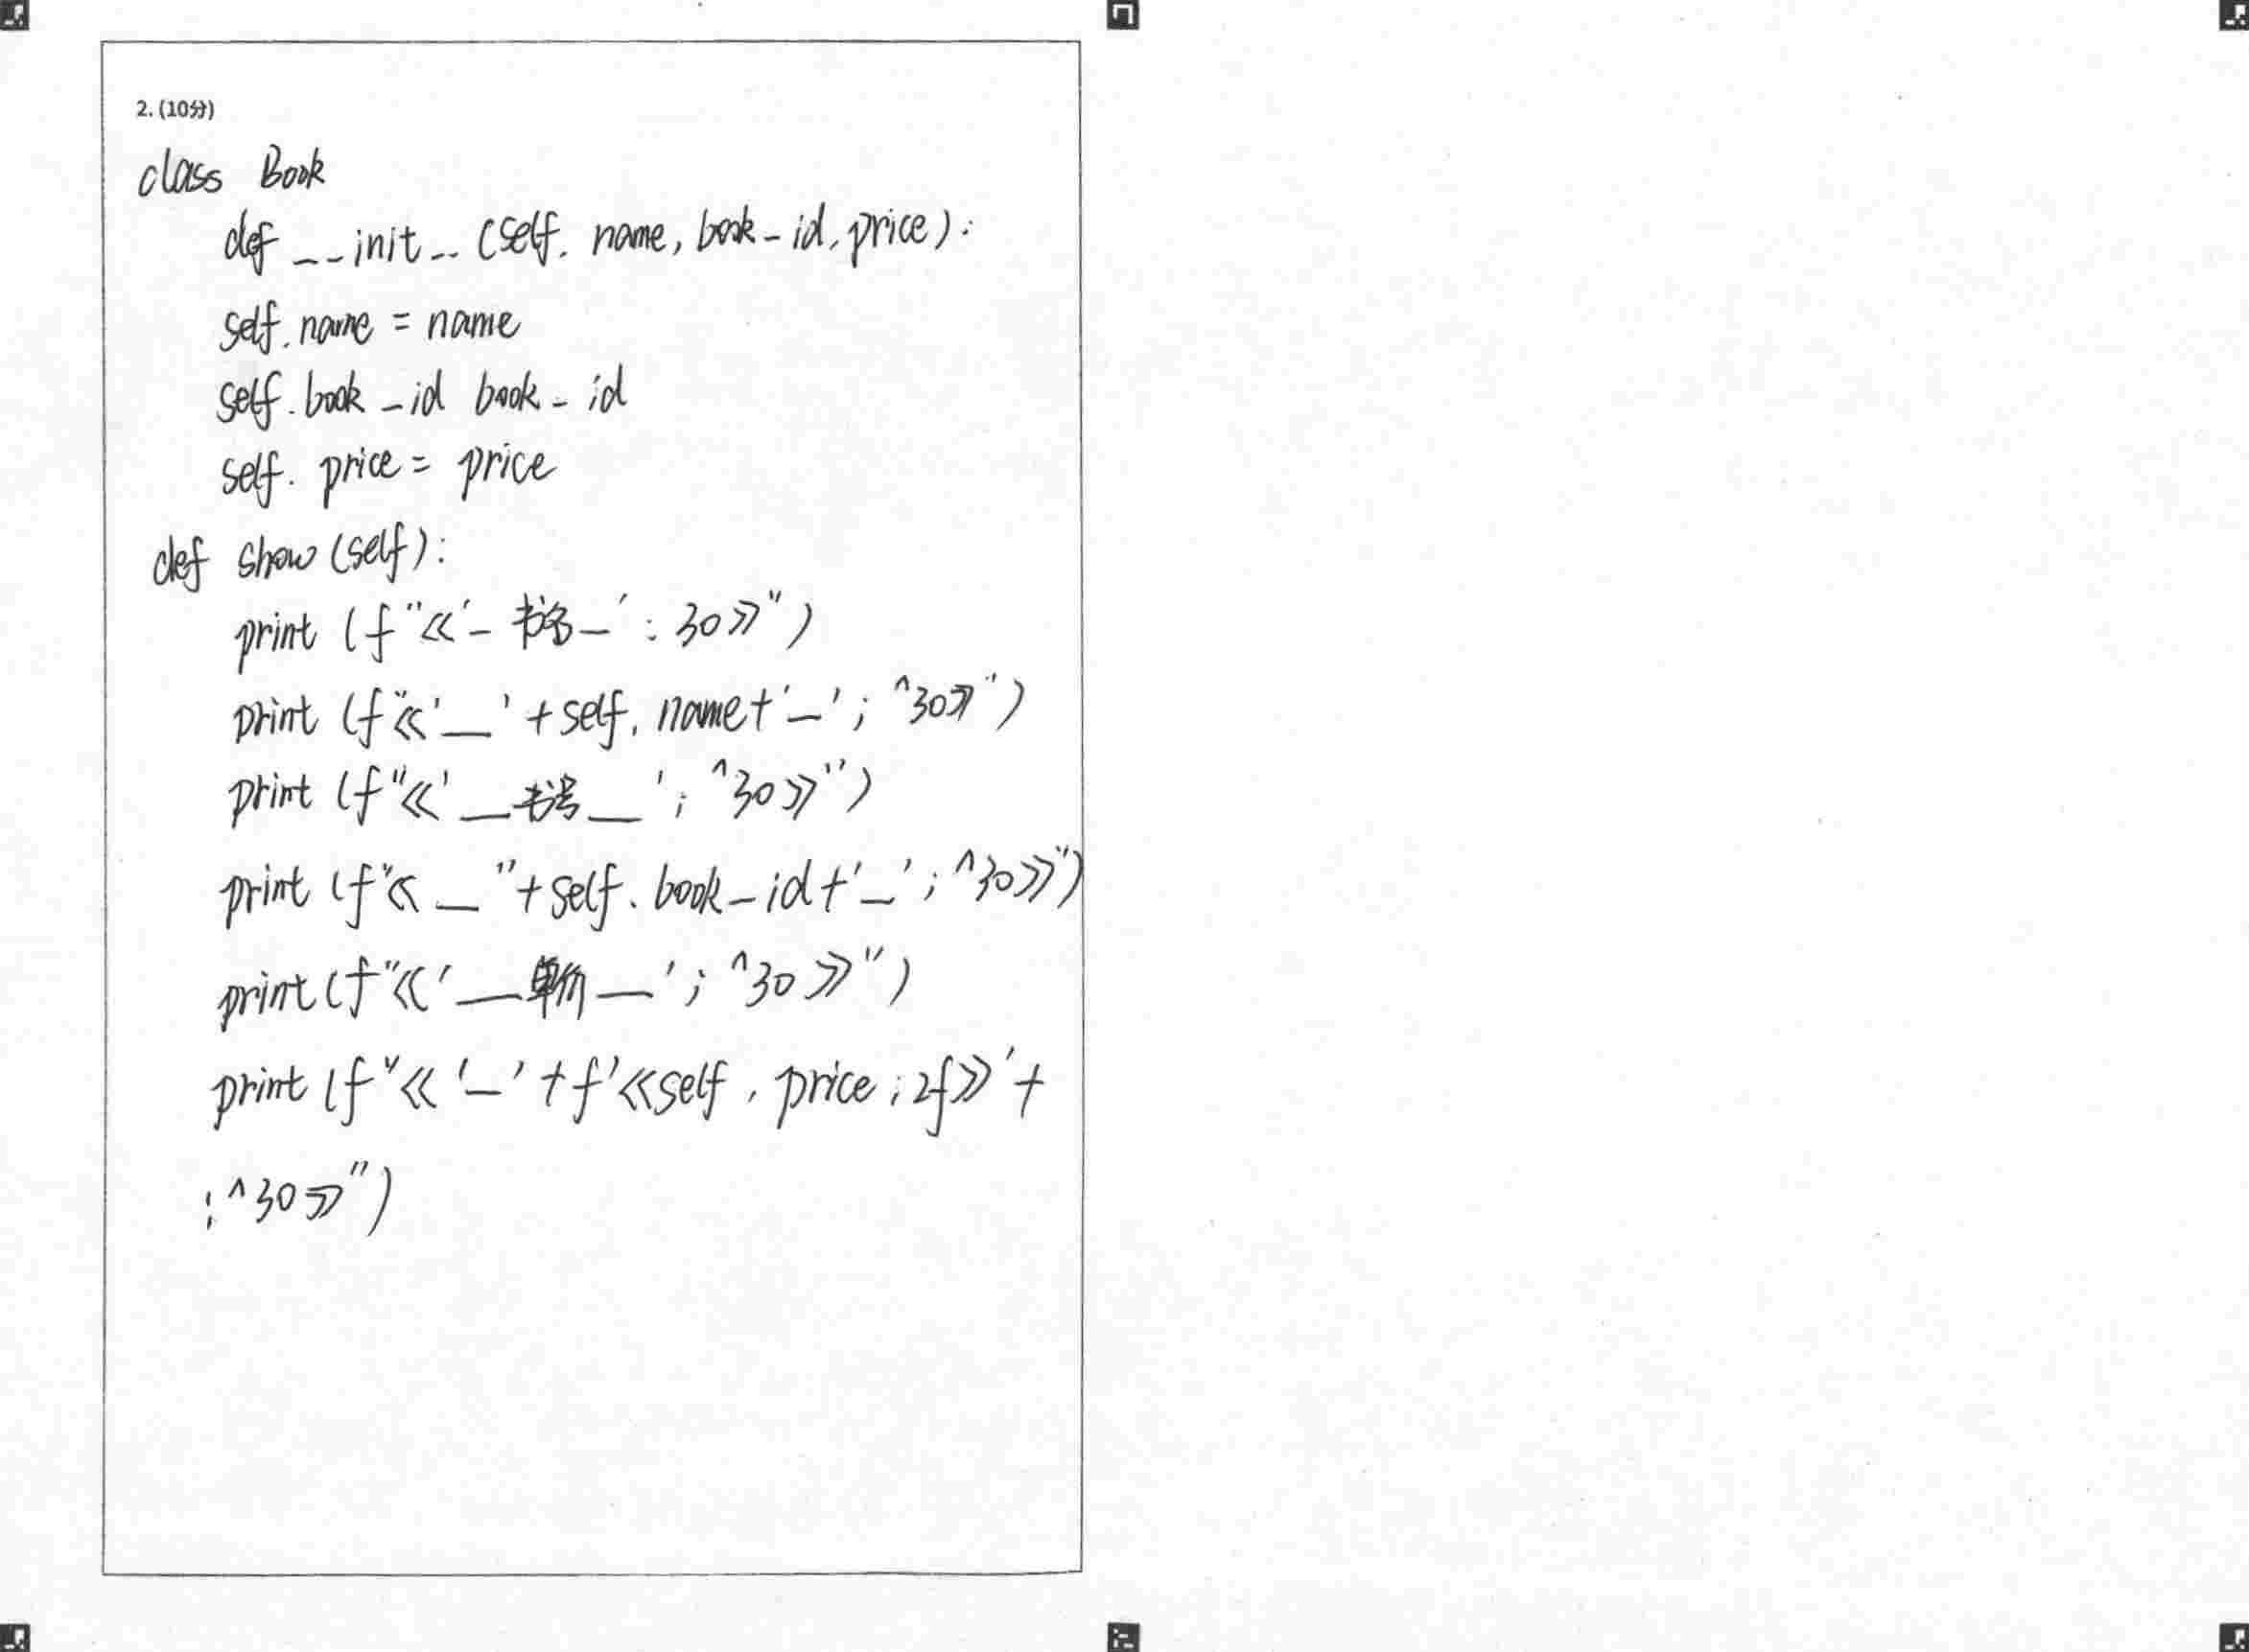 2. (10分)
class Book
def __init__ (self. name, book_id, price):
self. name = name
self. book_id book_id
self. price = price
def show (self):
print (f"≪'_ 书名_' : 30≫")
print (f"≪'__' + self. name+'_' ; ^30≫")
print (f"≪'__书号__' ; ^30≫")
print (f"≪ __"+self. book_id+'_' ; ^30≫")
print (f"≪'__单价__' ; ^30≫")
print (f"≪'_' + f'≪self. price ; 2f≫'+
: ^30≫")